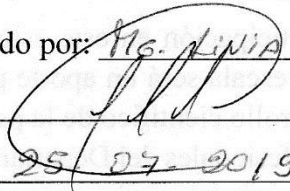 do por: Mg. Kinia
25 07 2019